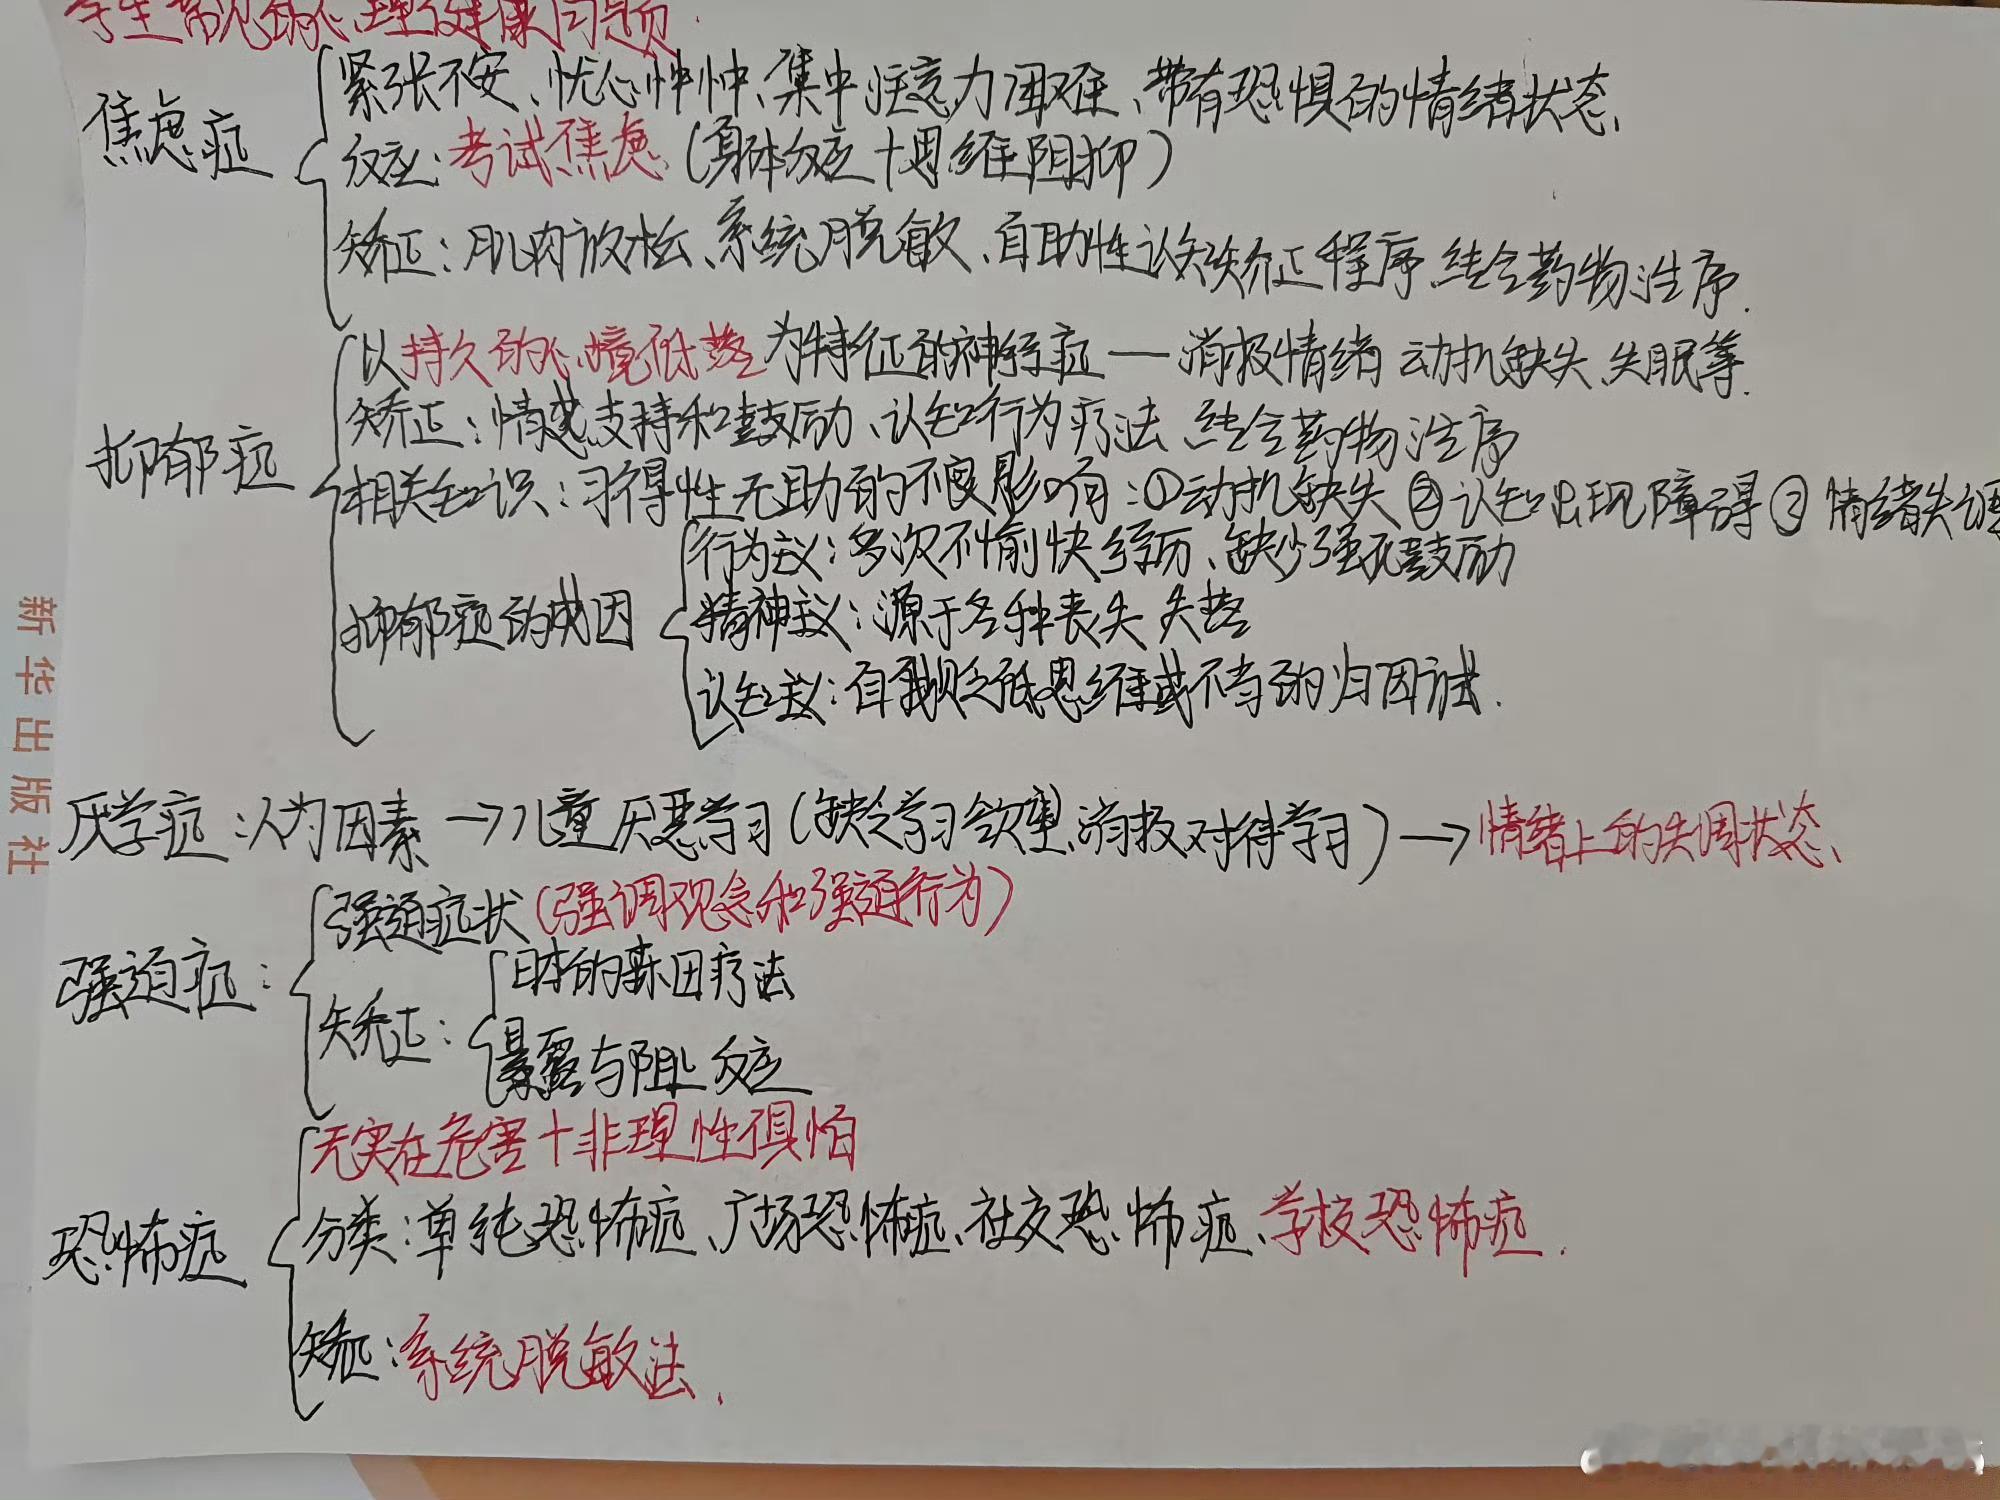 学生常见的心理健康问题.
焦虑症
紧张不安、忧心忡忡、集中注意力困难、带有恐惧的情绪状态.
反应:考试焦虑(身体反应+思维阻抑)
矫正:肌肉放松、系统脱敏、自助性认知矫正程序.结合药物治疗.
抑郁症
以持久的心境低落为特征的神经症—消极情绪 动机缺失、失眠等.
矫正:情感支持和鼓励、认知行为疗法 结合药物治疗
相关知识:习得性无助的不良影响:①动机缺失②认知出现障碍③情绪失调
抑郁症的成因
行为主义:多次不愉快经历、缺少强化鼓励
精神主义:源于各种丧失 失落
认知主义:自我贬低思维或不当的归因方式.
厌学症:人为因素→儿童厌恶学习(缺乏学习欲望、消极对待学习)→情绪上的失调状态、
强迫症:
强迫症状(强调观念和强迫行为)
矫正:
日本的森田疗法
暴露与阻止反应
恐怖症
无实在危害+非理性惧怕
分类:单纯恐怖症、广场恐怖症、社交恐怖症、学校恐怖症.
矫正:系统脱敏法.
新华出版社